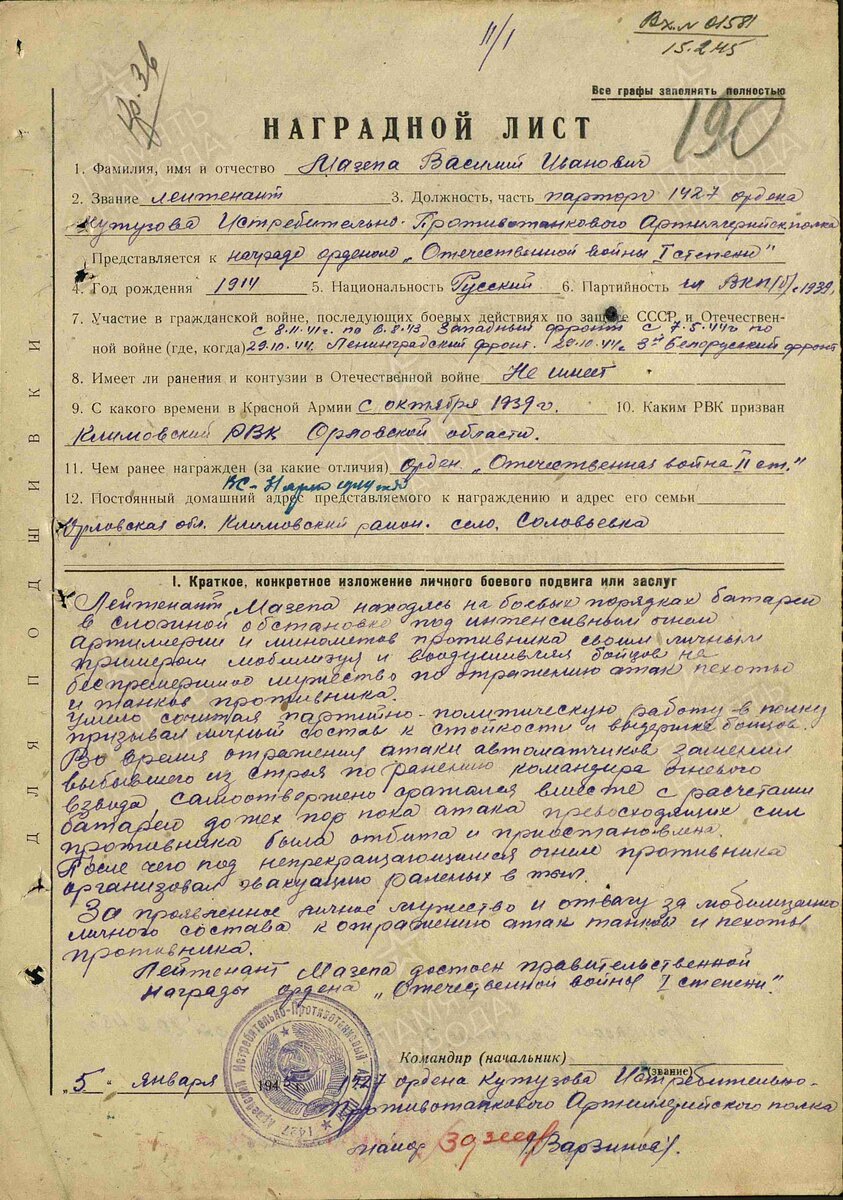 Вх. № 01581
15.2.45
11/1
Все графы заполнять полностью
190
НАГРАДНОЙ ЛИСТ
1. Фамилия, имя и отчество Мазепа Василий Иванович
2. Звание лейтенант 3. Должность, часть парторг 1427 ордена
Кутузова Истребительно-Противотанкового Артиллерийск полка
Представляется к награде орденом „Отечественной войны I степени"
4. Год рождения 1914 5. Национальность Русский 6. Партийность чл ВКП(б) с 1939г.
7. Участие в гражданской войне, последующих боевых действиях по защите СССР и Отечествен-
с 8.11.41г. по 8.43 Западный фронт с 7.5.44г по
ной войне (где, когда) 29.10.44. Ленинградский фронт. 29.10.44г 3й Белорусский фронт
8. Имеет ли ранения и контузии в Отечественной войне Не имеет
9. С какого времени в Красной Армии с октября 1939г. 10. Каким РВК призван
Климовский РВК Орловской области.
11. Чем ранее награжден (за какие отличия) орден „Отечественная война II ст."
12. Постоянный домашний адрес представляемого к награждению и адрес его семьи
Орловская обл. Климовский район. село, Соловьевка
I. Краткое, конкретное изложение личного боевого подвига или заслуг
Лейтенант Мазепа находясь на боевых порядках батареи
в сложной обстановке под интенсивным огнем
артиллерии и минометов противника своим личным
примером мобилизуя и воодушевляя бойцов на
беспремерное мужество по отражению атак пехоты
и танков противника.
Умело сочитая партийно-политическую работу в полку
призывал личный состав к стойкости и выдержке бойцов.
Во время отражения атаки автоматчиков заменил
выбывшего из строя по ранению командира огневого
взвода, самоотвержено сражался вместе с расчетами
батареи до тех пор пока атака превосходящих сил
противника была отбита и приостановлена.
После чего под непрекращающимся огнем противника
организовал эвакуацию раненых в тыл.
За проявленное личное мужество и отвагу за мобилизацию
личного состава к отражению атак танков и пехоты
противника.
Лейтенант Мазепа достоен правительственной
Награды ордена „Отечественной войны I степени."
Командир (начальник)
(звание)
„5" января 194 г. 1427 ордена Кутузова Истребительно-
Противотанкового Артиллерийского полка
майор (Варзинов).
ДЛЯ ПОДШИВКИ
1427 Армейский Истребительно-Противотанковый
ПАМЯТЬ НАРОДА